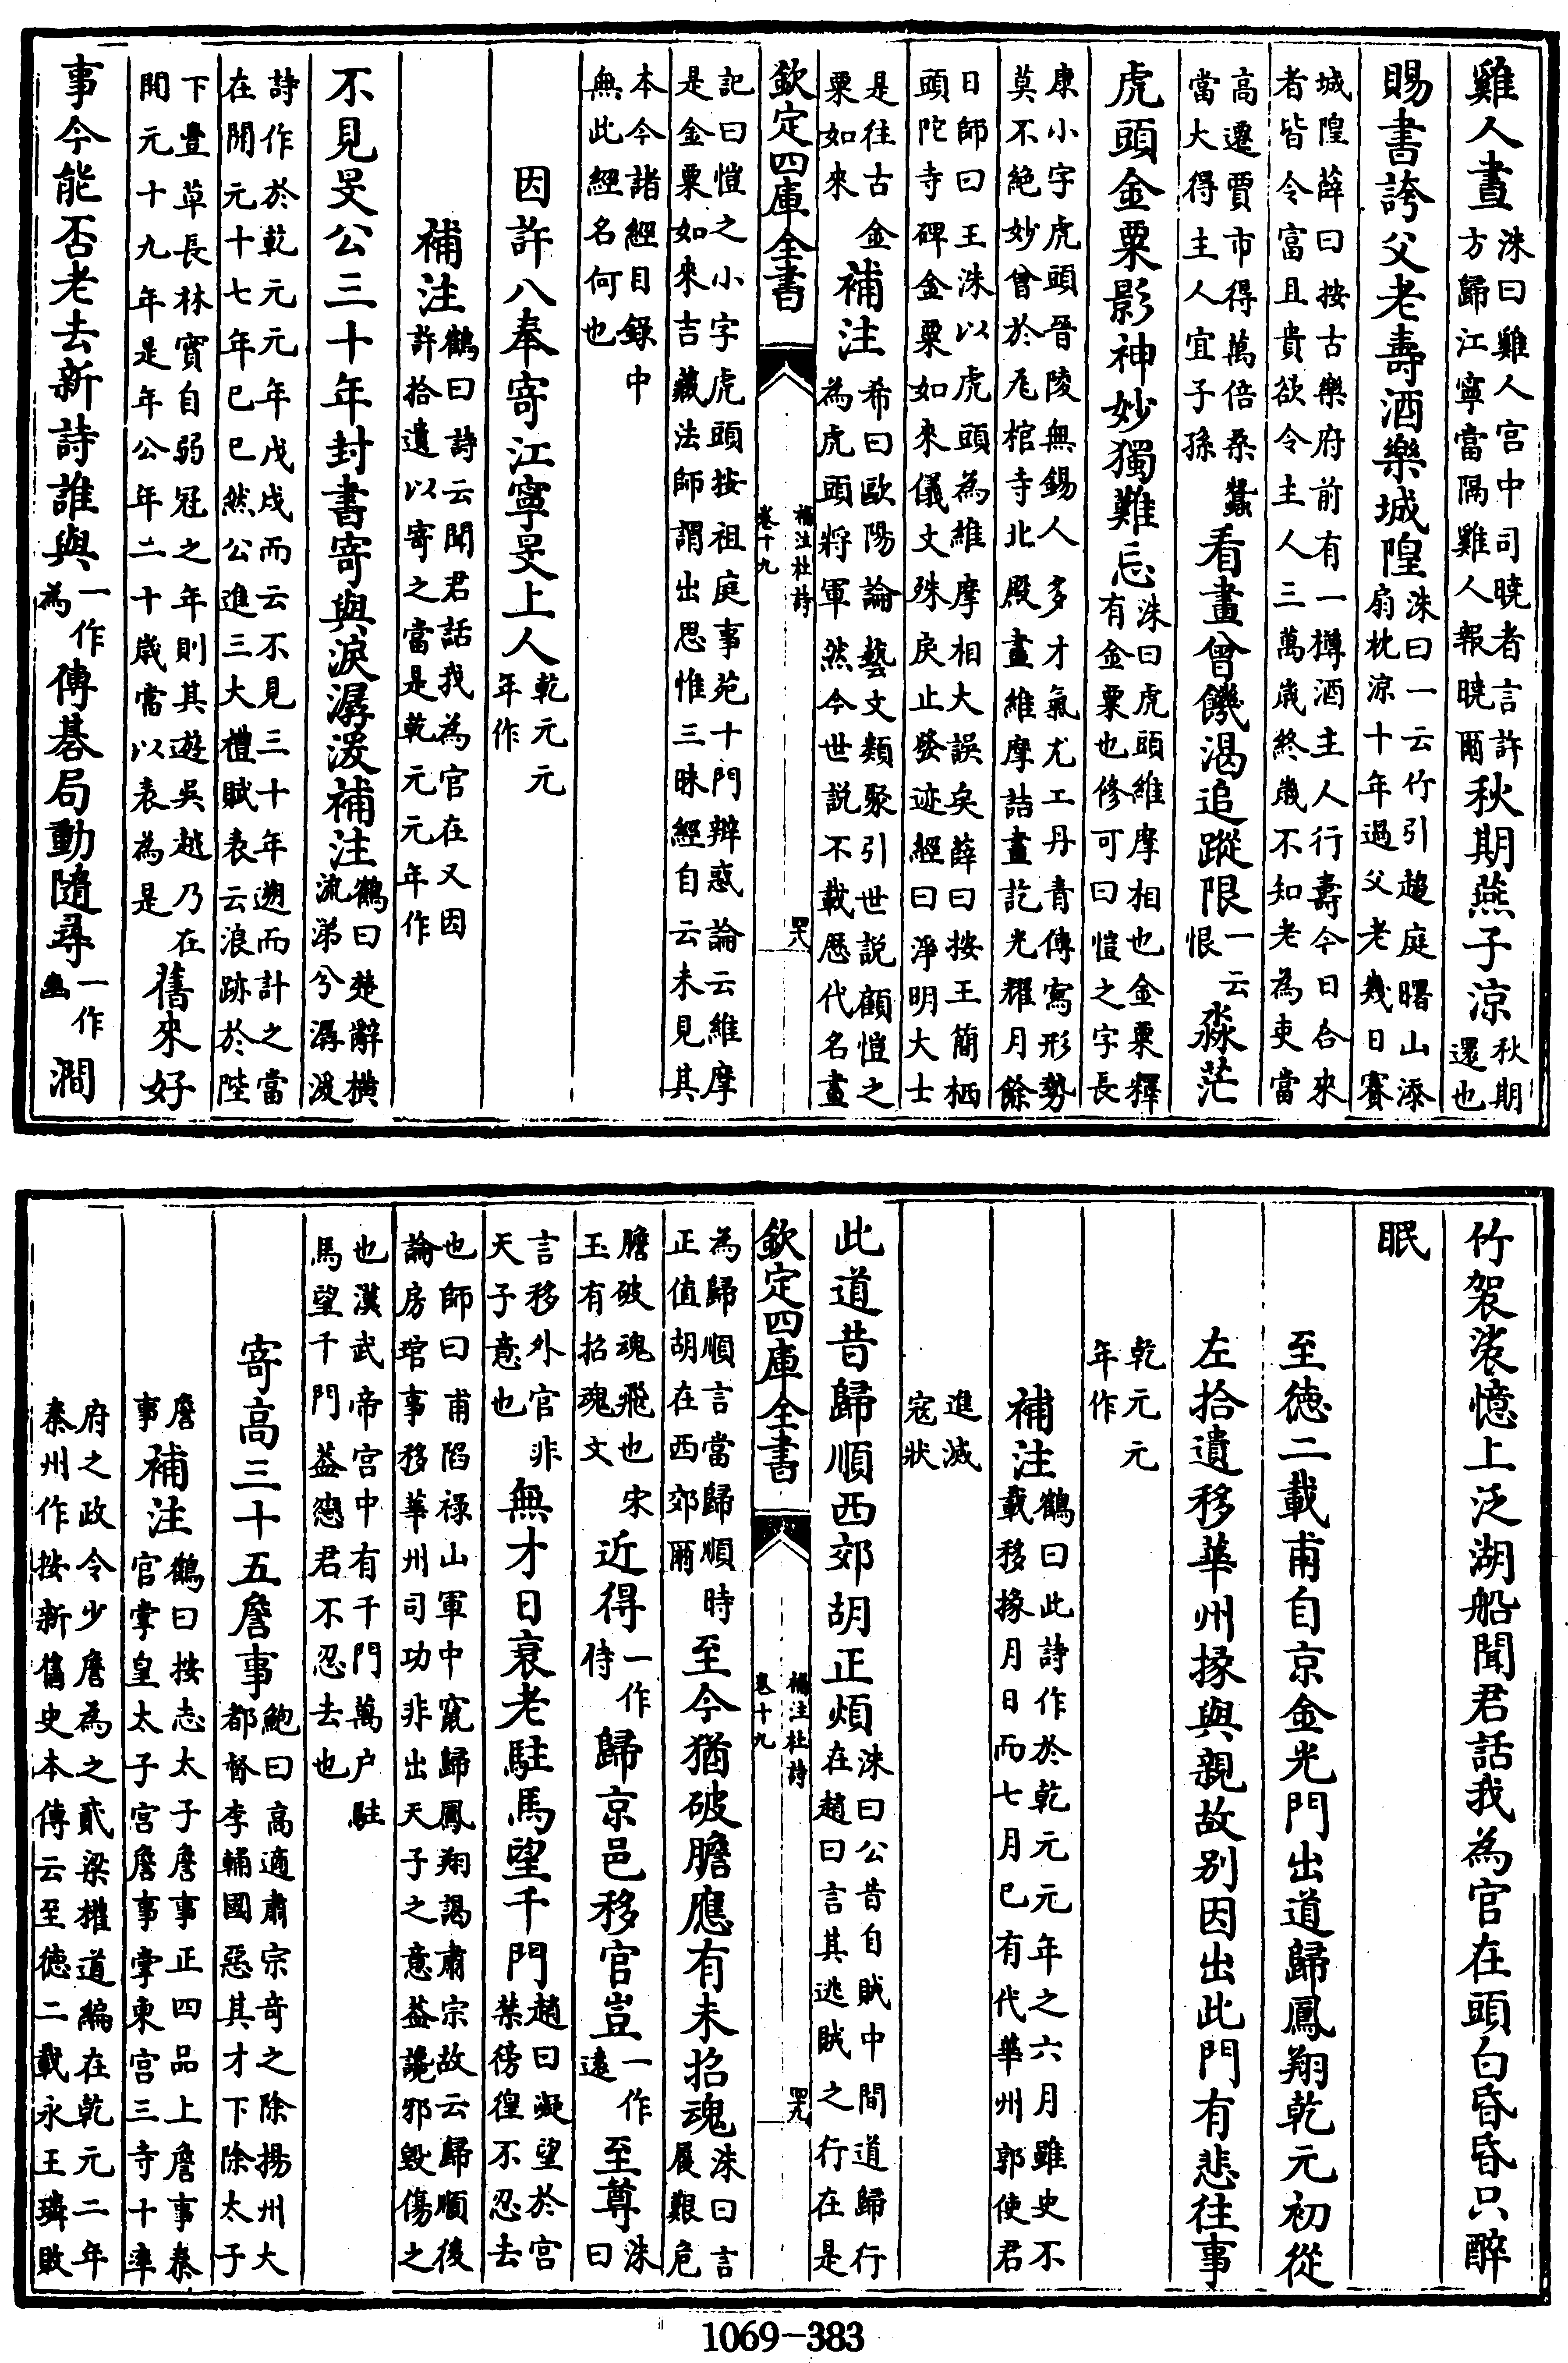 雞人晝洙曰雞人宫中司曉者言許方歸江寧當隔雞人報曉爾秋期燕子涼秋期還也
賜書誇父老壽酒樂城隍洙曰一云竹引趨庭曙山添扇枕涼十年過父老幾日賽
城隍薛曰按古樂府前有一樽酒主人行壽今日合來
者皆令富且貴欲令主人三萬歲終歲不知老為吏當
高遷賈市得萬倍桑蠶當大得主人宜子孫看畫曾饑渴追蹤限一云恨淼茫
虎頭金粟影神妙獨難忘洙曰虎頭維摩相也金粟釋有金粟也修可曰愷之字長
康小字虎頭晉陵無錫人多才氣尤工丹青傳寫形勢
莫不絶妙曾於瓦棺寺北殿畫維摩詰畫訖光耀月餘
日師曰王洙以虎頭為維摩相大誤矣薛曰按王簡栖
頭陀寺碑金粟如來儀文殊戾止發迹經曰淨明大士
是往古金粟如來補注希曰歐陽論藝文類聚引世說顧愷之為虎頭將軍然今世說不載歷代名畫
欽定四庫全書
補注杜詩
卷十九
四八
記曰愷之小字虎頭按祖庭事苑十門辯惑論云維摩
是金粟如來吉藏法師謂出思惟三昧經自云未見其
本今諸經目錄中
無此經名何也
因許八奉寄江寧旻上人乾元元年作
補注鶴曰詩云聞君話我為官在又因許拾遺以寄之當是乾元元年作
不見旻公三十年封書寄與淚潺湲補注鶴曰楚辭橫流涕兮潺湲
詩作於乾元元年戊戌而云不見三十年遡而計之當
在開元十七年己巳然公進三大禮賦表云浪跡於陛
下豐草長林實自弱冠之年則其遊吳越乃在開元十九年是年公年二十歲當以表為是舊來好
事今能否老去新詩誰與一作為傳棊局動隨尋一作幽澗
竹袈裟憶上泛湖船聞君話我為官在頭白昏昏只醉
眠
至德二載甫自京金光門出道歸鳳翔乾元初從
左拾遺移華州掾與親故别因出此門有悲往事
乾元元
年作
補注鶴曰此詩作於乾元元年之六月雖史不載移掾月日而七月已有代華州郭使君
進滅
寇狀
此道昔歸順西郊胡正煩洙曰公昔自賊中間道歸行在趙曰言其逃賊之行在是
欽定四庫全書
補注杜詩
卷十九
四九
為歸順言當歸順時正值胡在西郊爾至今猶破膽應有未招魂洙曰言屐艱危
膽破魂飛也宋玉有招魂文近得一作侍歸京邑移官豈一作遠至尊洙曰
言移外官非天子意也無才日衰老駐馬望千門趙曰凝望於宮禁徬徨不忍去
也師曰甫陷祿山軍中竄歸鳳翔謁肅宗故云歸順後
論房琯事移華州司功非出天子之意葢讒邪毀傷之
也漢武帝宮中有千門萬户駐
馬望千門葢戀君不忍去也
寄高三十五詹事鮑曰高適肅宗奇之除揚州大都督李輔國惡其才下除太子
詹事補注鶴曰按志太子詹事正四品上詹事秦官掌皇太子宮詹事掌東宮三寺十率
府之政令少詹為之貳梁權道編在乾元二年
秦州作按新舊史本傳云至德二載永王璘敗
1069-383